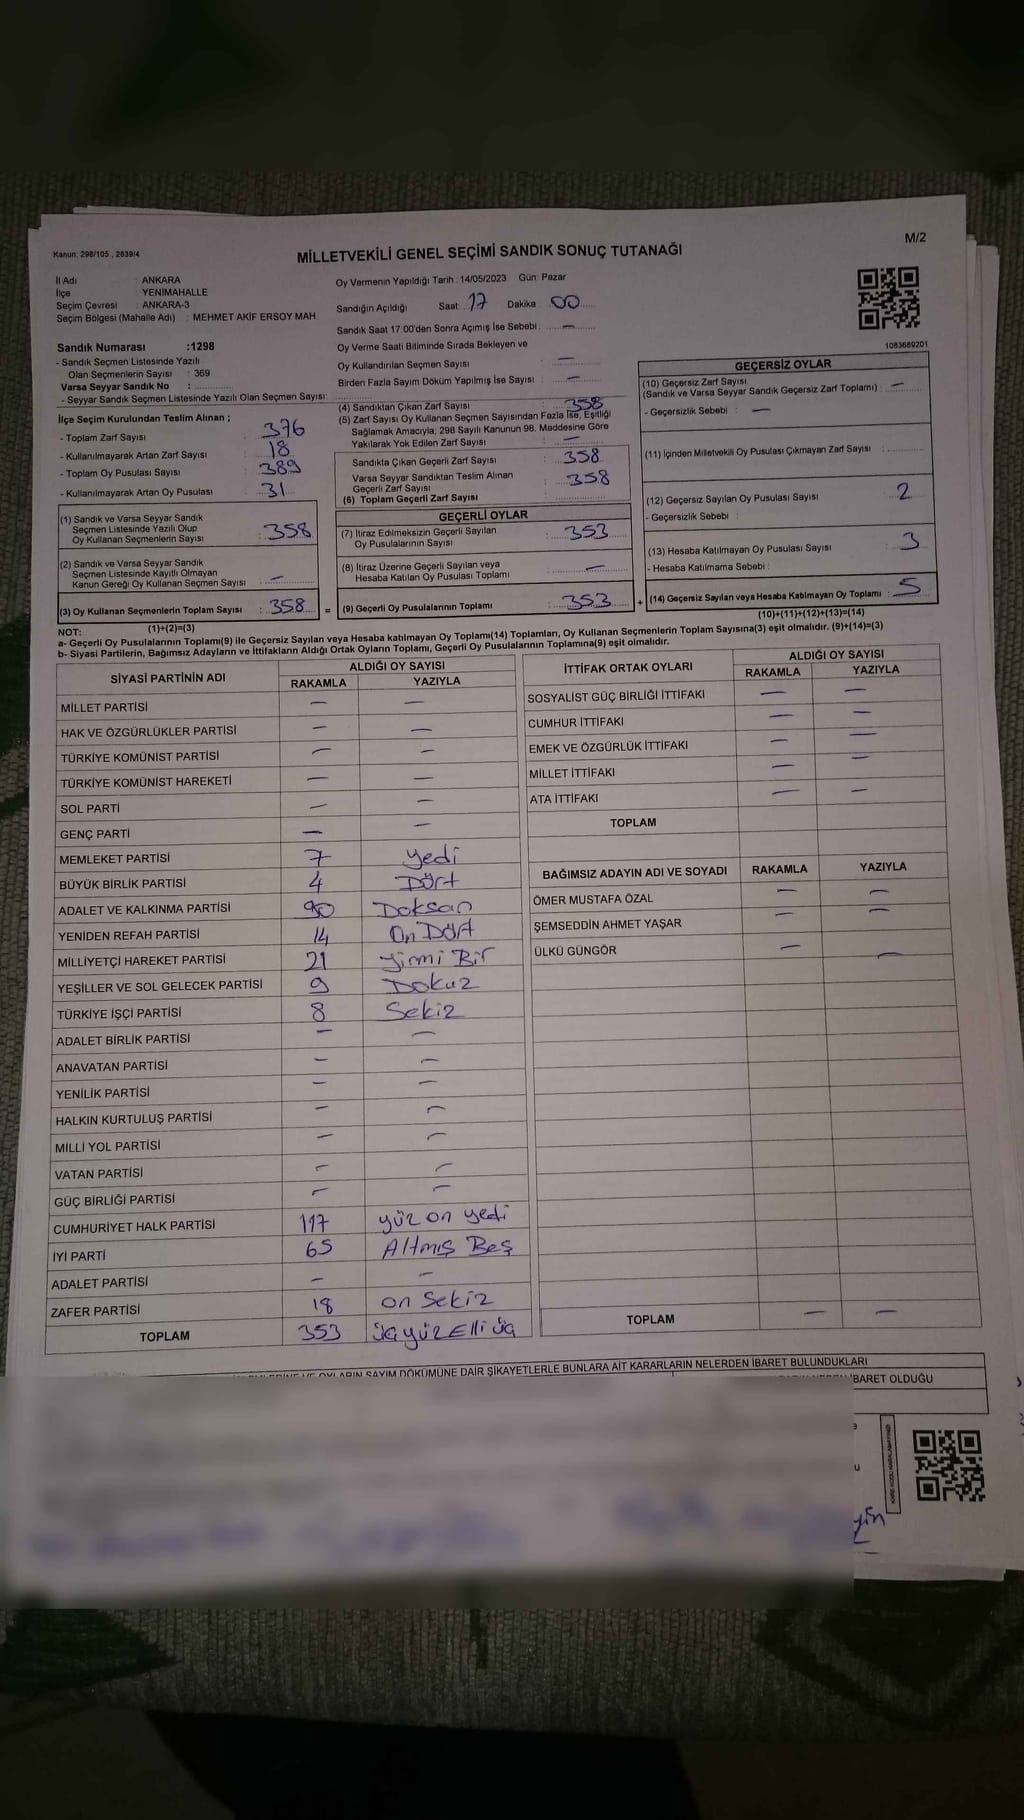 Kanun: 298/105 , 2839/4
M/2
MİLLETVEKİLİ GENEL SEÇİMİ SANDIK SONUÇ TUTANAĞI
İl Adı : ANKARA
İlçe : YENİMAHALLE
Seçim Çevresi : ANKARA-3
Seçim Bölgesi (Mahalle Adı) : MEHMET AKİF ERSOY MAH.
Oy Vermenin Yapıldığı Tarih : 14/05/2023 Gün: Pazar
Sandığın Açıldığı Saat: 17 Dakika : 00
Sandık Saat 17:00'den Sonra Açımış İse Sebebi : —
Oy Verme Saati Bitiminde Sırada Bekleyen ve
Oy Kullandırılan Seçmen Sayısı : —
Birden Fazla Sayım Döküm Yapılmış İse Sayısı : —
1083689201
Sandık Numarası :1298
- Sandık Seçmen Listesinde Yazılı
Olan Seçmenlerin Sayısı : 369
Varsa Seyyar Sandık No :
- Seyyar Sandık Seçmen Listesinde Yazılı Olan Seçmen Sayısı:
İlçe Seçim Kurulundan Teslim Alınan ;
- Toplam Zarf Sayısı : 376
- Kullanılmayarak Artan Zarf Sayısı : 18
- Toplam Oy Pusulası Sayısı : 389
- Kullanılmayarak Artan Oy Pusulası : 31
(1) Sandık ve Varsa Seyyar Sandık
Seçmen Listesinde Yazılı Olup
Oy Kullanan Seçmenlerin Sayısı : 358
(2) Sandık ve Varsa Seyyar Sandık
Seçmen Listesinde Kayıtlı Olmayan
Kanun Gereği Oy Kullanan Seçmen Sayısı : —
(3) Oy Kullanan Seçmenlerin Toplam Sayısı : 358
(1)+(2)=(3)
(4) Sandıktan Çıkan Zarf Sayısı : 358
(5) Zarf Sayısı Oy Kullanan Seçmen Sayısından Fazla İse, Eşitliği
Sağlamak Amacıyla, 298 Sayılı Kanunun 98. Maddesine Göre
Yakılarak Yok Edilen Zarf Sayısı : —
Sandıkta Çıkan Geçerli Zarf Sayısı : 358
Varsa Seyyar Sandıktan Teslim Alınan
Geçerli Zarf Sayısı : 358
(6) Toplam Geçerli Zarf Sayısı :
GEÇERLİ OYLAR
(7) İtiraz Edilmeksizin Geçerli Sayılan
Oy Pusulalarının Sayısı : 353
(8) İtiraz Üzerine Geçerli Sayılan veya
Hesaba Katılan Oy Pusulası Toplamı : —
= (9) Geçerli Oy Pusulalarının Toplamı : 353 +
GEÇERSİZ OYLAR
(10) Geçersiz Zarf Sayısı
(Sandık ve Varsa Seyyar Sandık Geçersiz Zarf Toplamı) : —
- Geçersizlik Sebebi : —
(11) İçinden Milletvekili Oy Pusulası Çıkmayan Zarf Sayısı :
(12) Geçersiz Sayılan Oy Pusulası Sayısı : 2
- Geçersizlik Sebebi :
(13) Hesaba Katılmayan Oy Pusulası Sayısı : 3
- Hesaba Katılmama Sebebi :
(14) Geçersiz Sayılan veya Hesaba Katılmayan Oy Toplamı : 5
(10)+(11)+(12)+(13)=(14)
NOT:
a- Geçerli Oy Pusulalarının Toplamı(9) ile Geçersiz Sayılan veya Hesaba Katılmayan Oy Toplamı(14) Toplamları, Oy Kullanan Seçmenlerin Toplam Sayısına(3) eşit olmalıdır. (9)+(14)=(3)
b- Siyasi Partilerin, Bağımsız Adayların ve İttifakların Aldığı Ortak Oyların Toplamı, Geçerli Oy Pusulalarının Toplamına(9) eşit olmalıdır.
SİYASİ PARTİNİN ADI ALDIĞI OY SAYISI
RAKAMLA YAZIYLA
MİLLET PARTİSİ — —
HAK VE ÖZGÜRLÜKLER PARTİSİ — —
TÜRKİYE KOMÜNİST PARTİSİ — —
TÜRKİYE KOMÜNİST HAREKETİ — —
SOL PARTİ — —
GENÇ PARTİ — —
MEMLEKET PARTİSİ 7 yedi
BÜYÜK BİRLİK PARTİSİ 4 Dört
ADALET VE KALKINMA PARTİSİ 90 Doksan
YENİDEN REFAH PARTİSİ 14 On Dört
MİLLİYETÇİ HAREKET PARTİSİ 21 yirmi Bir
YEŞİLLER VE SOL GELECEK PARTİSİ 9 Dokuz
TÜRKİYE İŞÇİ PARTİSİ 8 Sekiz
ADALET BİRLİK PARTİSİ — —
ANAVATAN PARTİSİ — —
YENİLİK PARTİSİ — —
HALKIN KURTULUŞ PARTİSİ — —
MİLLİ YOL PARTİSİ — —
VATAN PARTİSİ — —
GÜÇ BİRLİĞİ PARTİSİ — —
CUMHURİYET HALK PARTİSİ 117 yüz on yedi
İYİ PARTİ 65 Altmış Beş
ADALET PARTİSİ — —
ZAFER PARTİSİ 18 on Sekiz
TOPLAM 353 üçyüzElli üç
İTTİFAK ORTAK OYLARI ALDIĞI OY SAYISI
RAKAMLA YAZIYLA
SOSYALİST GÜÇ BİRLİĞİ İTTİFAKI — —
CUMHUR İTTİFAKI — —
EMEK VE ÖZGÜRLÜK İTTİFAKI — —
MİLLET İTTİFAKI — —
ATA İTTİFAKI — —
TOPLAM
BAĞIMSIZ ADAYIN ADI VE SOYADI RAKAMLA YAZIYLA
ÖMER MUSTAFA ÖZAL — —
ŞEMSEDDİN AHMET YAŞAR — —
ÜLKÜ GÜNGÖR — —
TOPLAM — —
OYLARIN SAYIM DÖKÜMÜNE DAİR ŞİKAYETLERLE BUNLARA AİT KARARLARIN NELERDEN İBARET BULUNDUKLARI
İBARET OLDUĞU